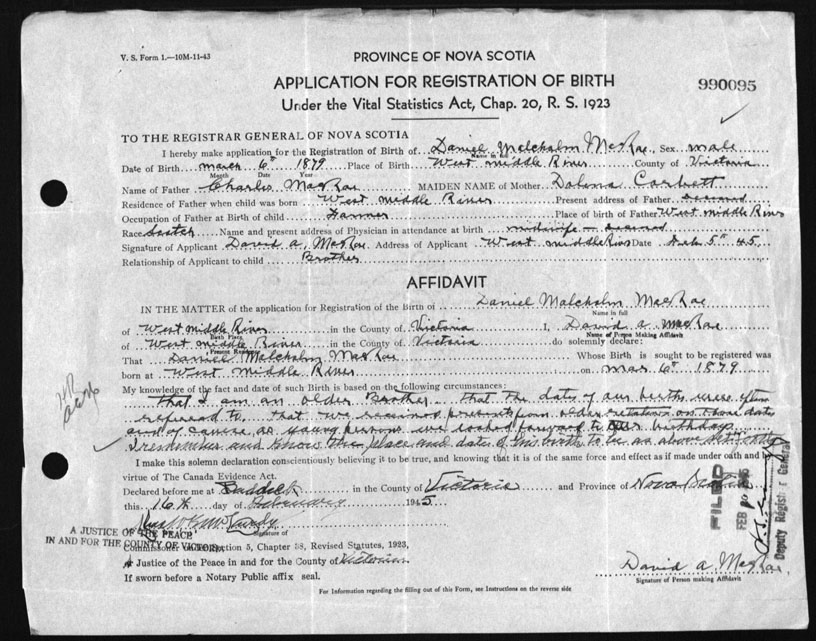 V. S. Form 1.—10M-11-43
PROVINCE OF NOVA SCOTIA
APPLICATION FOR REGISTRATION OF BIRTH
990095
Under the Vital Statistics Act, Chap. 20, R. S. 1923
TO THE REGISTRAR GENERAL OF NOVA SCOTIA
I hereby make application for the Registration of Birth of Daniel Malcholm MacRae, Sex male
Name in full
Date of Birth march 6th 1879 Place of Birth West middle River County of Victoria
Month Date Year
Name of Father Charles MacRae MAIDEN NAME of Mother Dolina Corbett
Residence of Father when child was born West middle River Present address of Father
Occupation of Father at Birth of child Farmer Place of birth of Father West middle River
Race Scotch Name and present address of Physician in attendance at birth midwife -
Signature of Applicant David A. MacRae Address of Applicant West middle River Date Feb 5th 45
Relationship of Applicant to child Brother
AFFIDAVIT
IN THE MATTER of the application for Registration of the Birth of Daniel Malcholm MacRae
Name in full
of West middle River in the County of Victoria I, David A MacRae
Birth Place Name of Person Making Affidavit
of West middle River in the County of Victoria do solemnly declare:
Present Residence
That Daniel Malcholm MacRae Whose Birth is sought to be registered was
born at West Middle River on mar 6th 1879
My knowledge of the fact and date of such Birth is based on the following circumstances:
that I am an older Brother that the date of our births were often
refered to, that we received presents from older relatives on those dates
and of course as young persons we looked forward to our birthdays
I remember and know the place and date of his birth to be as above
I make this solemn declaration conscientiously believing it to be true, and knowing that it is of the same force and effect as if made under oath and by
virtue of The Canada Evidence Act.
Declared before me at Baddeck in the County of Victoria and Province of Nova Scotia
this 16th day of February 1945
Signature of
A JUSTICE OF THE PEACE
IN AND FOR THE COUNTY OF VICTORIA
Commissioner under Section 5, Chapter 38, Revised Statutes, 1923,
A Justice of the Peace in and for the County of Victoria
If sworn before a Notary Public affix seal.
FILED
FEB
Deputy Registrar General
David A. MacRae
Signature of Person making Affidavit
For Information regarding the filling out of this Form, see Instructions on the reverse side